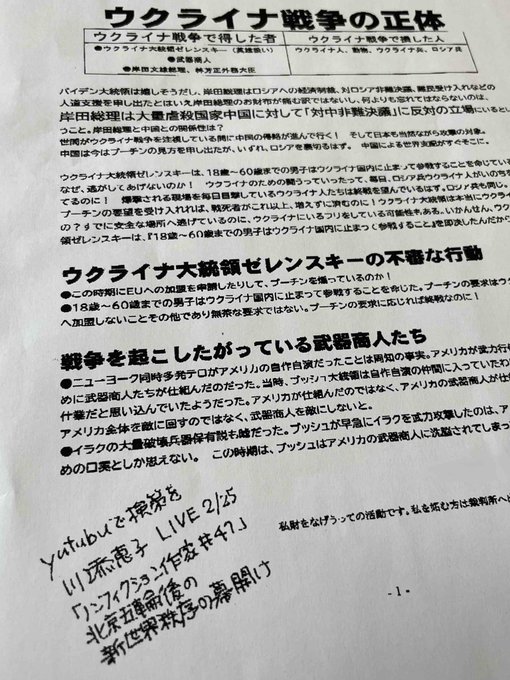 ウクライナ戦争の正体
ウクライナ戦争で得した者
ウクライナ戦争で損した人
●ウクライナ大統領ゼレンスキー(英雄扱い)
●武器商人
●岸田文雄総理、林芳正外務大臣
ウクライナ人、動物、ウクライナ兵、ロシア兵
バイデン大統領は嬉しそうだし、岸田総理はロシアへの経済制裁、対ロシア非難決議、難民受け入れなどの
人道支援を申し出たとはいえ岸田総理のお財布が痛む訳ではないし、何よりも忘れてはならないのは、
岸田総理は大量虐殺国家中国に対して「対中非難決議」に反対の立場にいるとい
うこと。岸田総理と中国との関係性は?
世間がウクライナ戦争を注視している間に中国の侵略が進んで行く! そして日本も当然ながら攻撃の対象。
中国は今はプーチンの見方を申し出たが、いずれ、ロシアを裏切るはず。 中国による世界支配がすぐそこに。
ウクライナ大統領ゼレンスキーは、18歳~60歳までの男子はウクライナ国内に止まって参戦することを命じている
なぜ、逃がしてあげないのか! ウクライナのための闘うっていったって、毎日、ロシア兵ウクライナ人がいのちを
てるのに! 爆撃される現場を毎日目撃しているウクライナ人たちは終戦を望んでいるはず。ロシア兵も同じ。
プーチンの要望を受け入れれば、戦死者がこれ以上、増えずに済むのに!ウクライナ大統領は本当にウクライ
の?すでに安全な場所へ逃げているのに、ウクライナにいるフリをしている可能性もある。いかんせん、ウクラ
領ゼレンスキーは、『18歳~60歳までの男子はウクライナ国内に止まって参戦すること』を即決したんだから
ウクライナ大統領ゼレンスキーの不審な行動
●この時期にEUへの加盟を申請したりして、プーチンを煽っているのか!
●18歳~60歳までの男子はウクライナ国内に止まって参戦することを命じた。プーチンの要求はウク
へ加盟しないことその他であり無茶な要求ではない。プーチンの要求に応じれば終戦なのに!
戦争を起こしたがっている武器商人たち
●ニューヨーク同時多発テロがアメリカの自作自演だったことは周知の事実。アメリカが武力行使
めに武器商人たちが仕組んだのだった。当時、ブッシュ大統領は自作自演の仲間に入っていたわ
仕業だと思い込んでいたようだった。アメリカが仕組んだのではなく、アメリカの武器商人が仕
アメリカ全体を敵に回すのではなく、武器商人を敵にしないと。
●イラクの大量破壊兵器保有説も嘘だった。ブッシュが早急にイラクを武力攻撃したのは、ア
めの口実としか思えない。 この時期は、ブッシュはアメリカの武器商人に洗脳されてしまっ
私財をなげうっての活動です。私を拒む方は裁判所へ
yutubuで検索を
川添恵子 LIVE 2/25
「ノンフィクション作家#47」
北京五輪後の
新世界秩序の幕開け
- 1 -